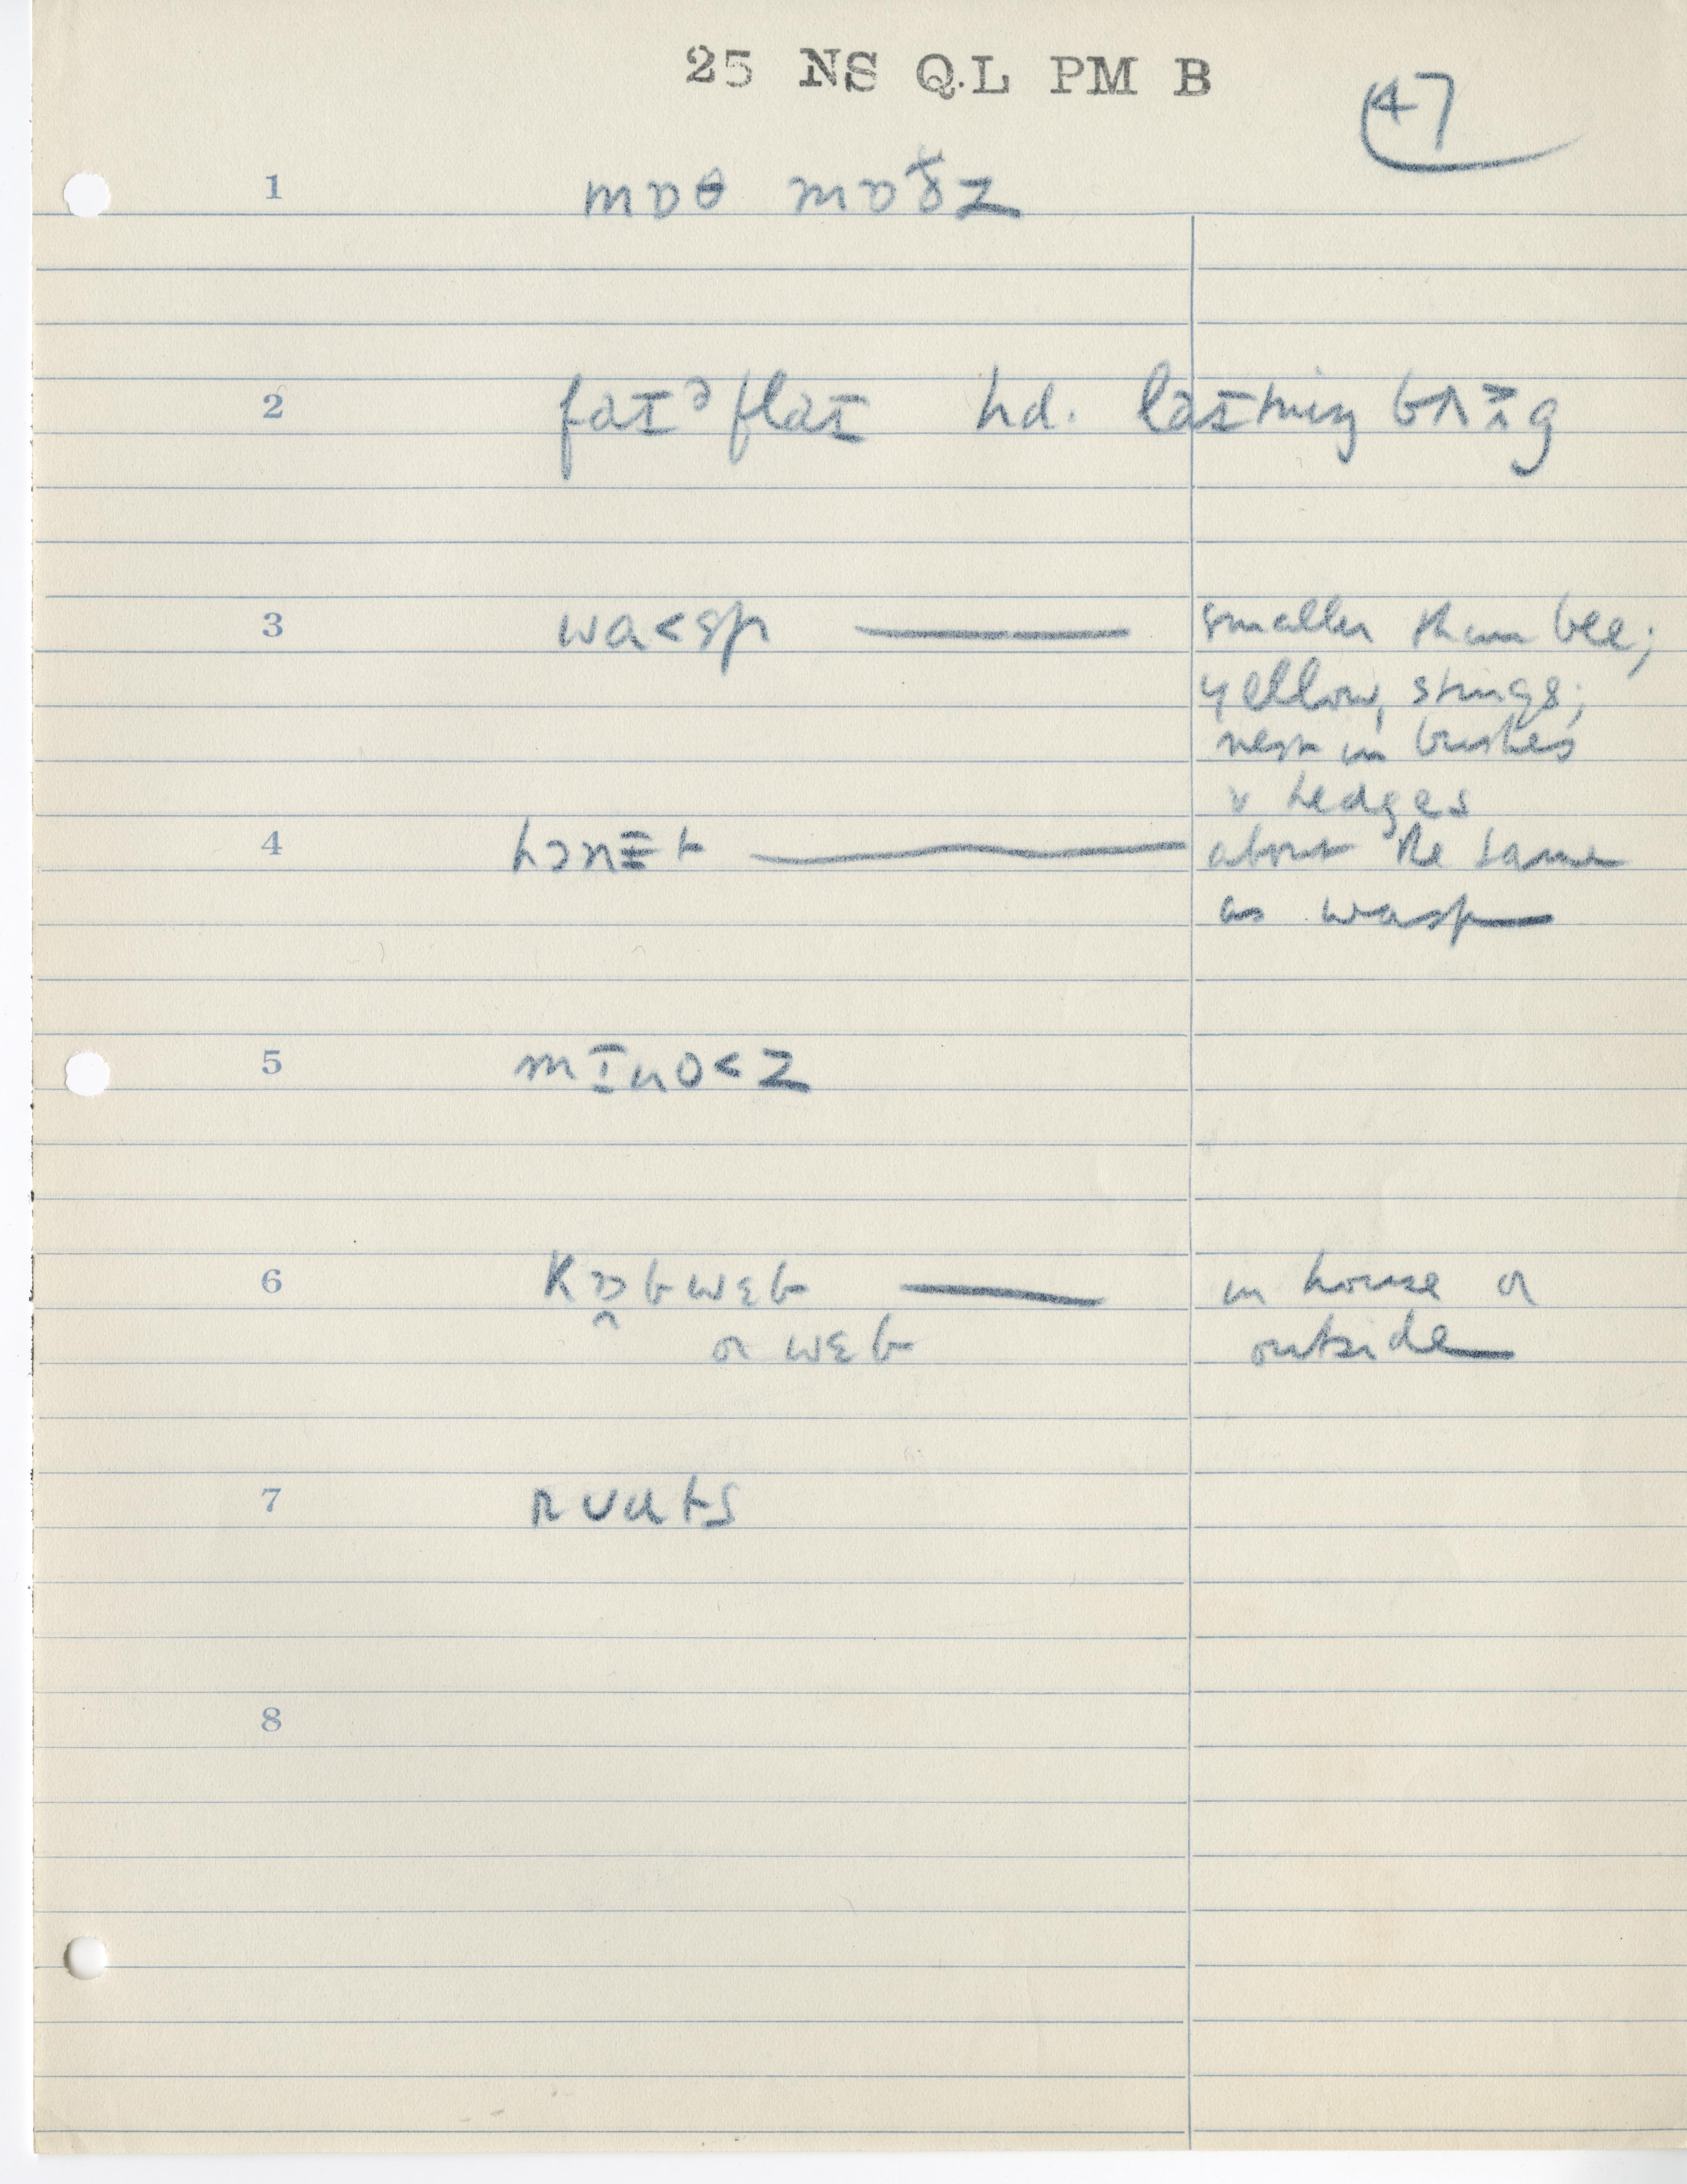 25 NS QL PM B
47
1 mɒθ mɒðz
2 faɪᵊflaɪ hd. laɪtnɪŋ bʌg
3 wa<sp — smaller than bee;
yellow, stings;
nest in bushes
& hedges
4 hɔnɪt — about the same
as wasp
5 mɪno<z
6 kɒbwɛb — in house or
or wɛb outside
7 rʊuts
8